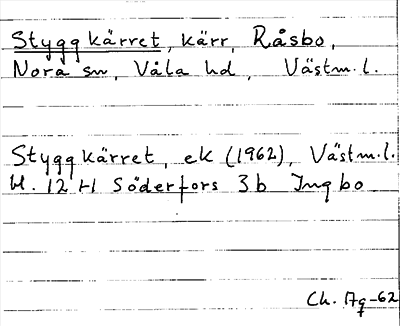 Styggkärret, kärr, Råsbo,
Nora sn, Våla hd, Västm.l.
Styggkärret, ek (1962), Västm.l.
bl. 12 H Söderfors 3b Ingbo
Ch. Ag -62